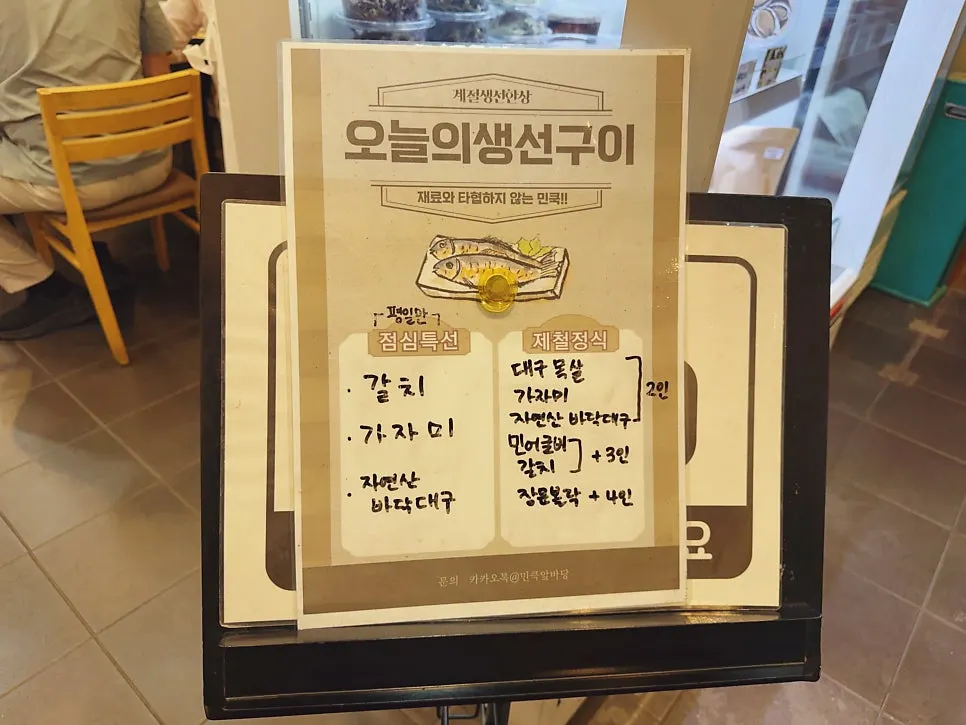 계절생선한상
오늘의생선구이
재료와 타협하지 않는 민쿡!!
평일만
점심특선
· 갈치
· 가자미
· 자연산
바닥대구
제철정식
대구목살
가자미
자연산 바닥대구
2인
민어굴비
갈치
+3인
장문볼락 +4인
문의 카카오톡@민쿡앞바당
요